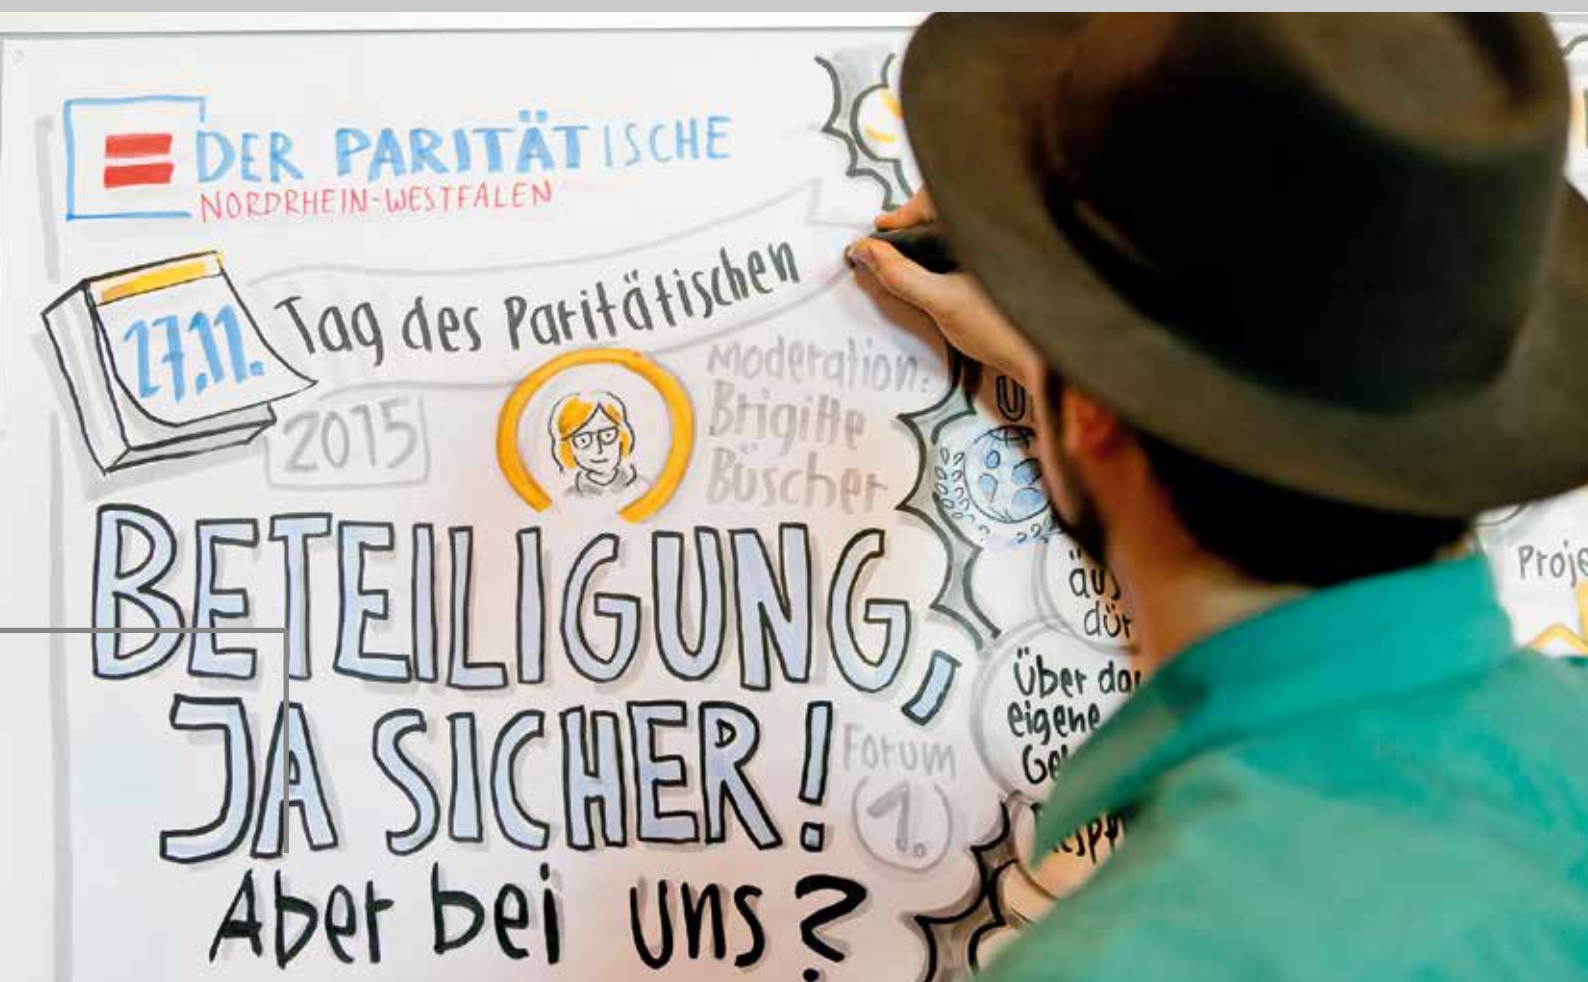 DER PARITÄTISCHE
NORDRHEIN-WESTFALEN
27.11.
Tag des Paritätischen
2015
Moderation:
Brigitte
Büscher
BETEILIGUNG,
JA SICHER!
Forum
1.
Aber bei uns?
Über
eigene